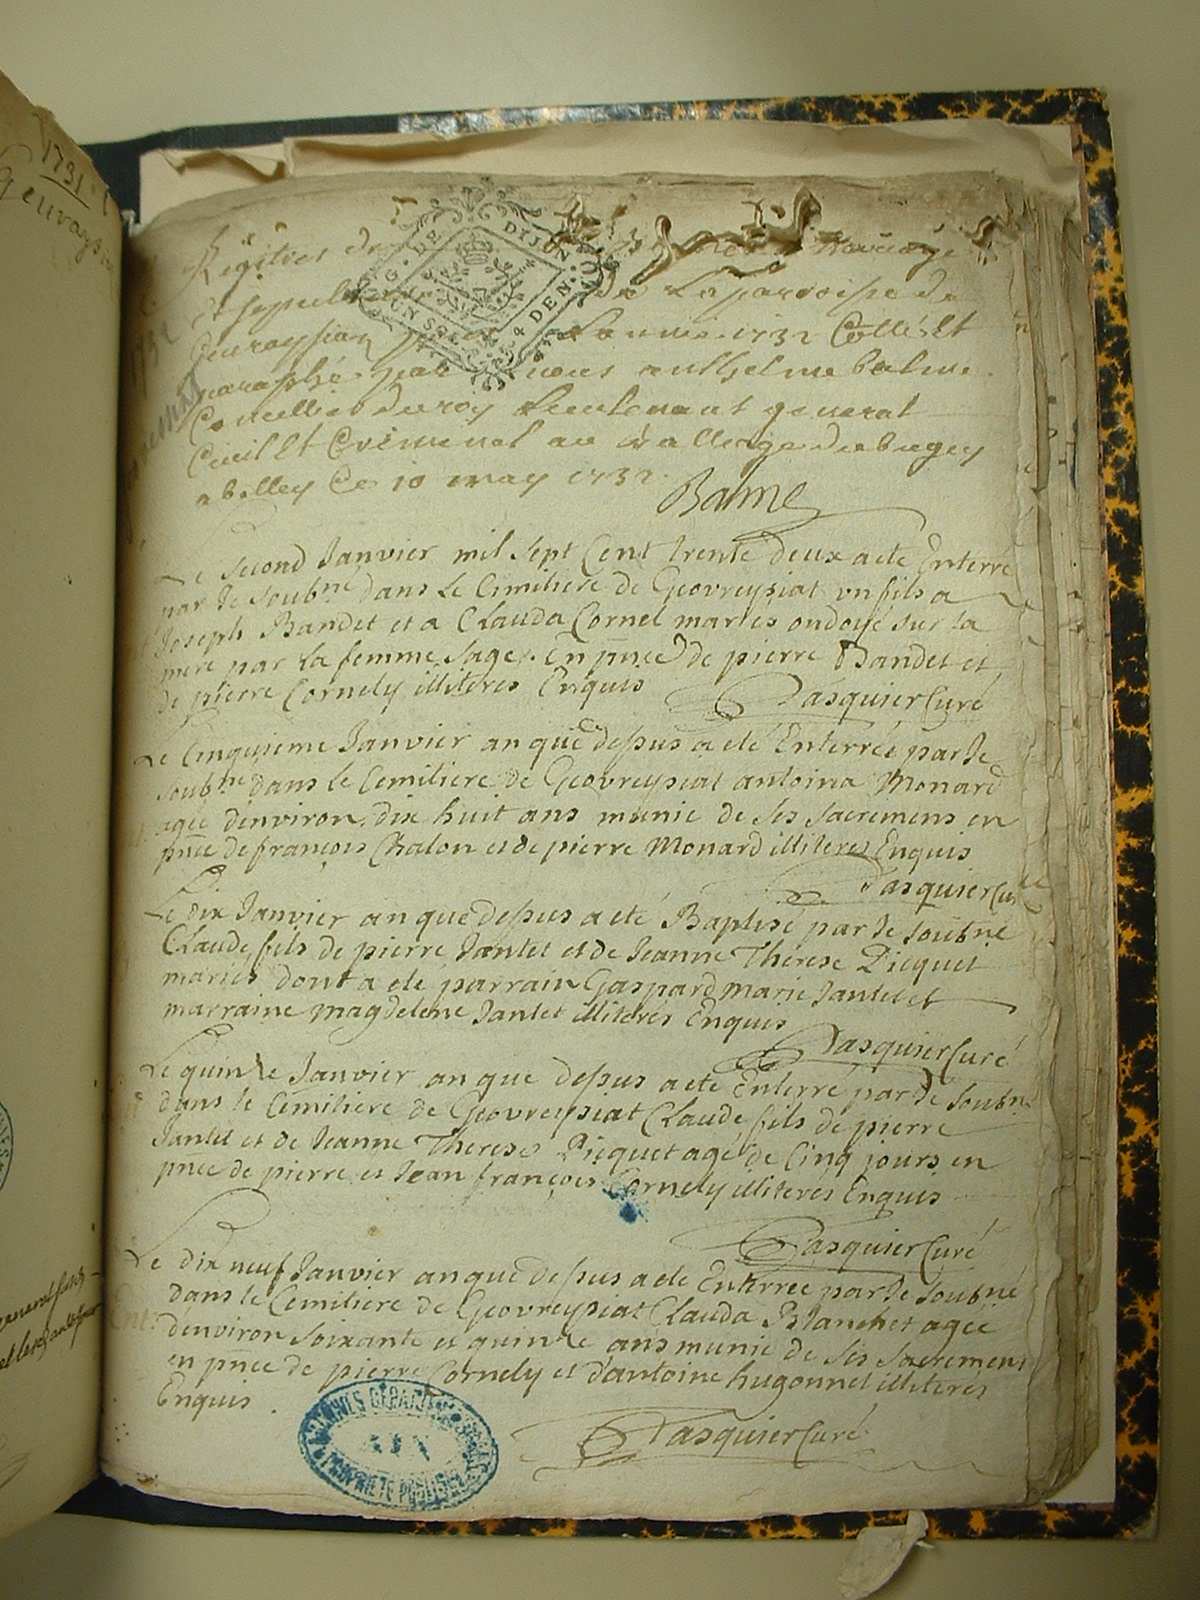 1731
Geuraysia
Registres de mariage
Et sepulture de La paroisse de
Geuraysiaz pour Lannee 1732 Cotté Et
paraphé par nous anthelme balme
Conseillier du roy Lieutenant general
Civil Et Criminel au Balliage de bugey
a belley Ce 10 may 1732
Balme
G. DE DIJON
UN SOL 4 DEN.
Le second Janvier mil sept Cent trente deux a ete Enterré
par Je soubné dans Le Cimitiere de Geovreysiat un fils a
Joseph Bandet et a Clauda Cornel mariés ondoyé sur la
mere par la femme sage. En pnce de pierre Bandet et
de pierre Cornely illiteres Enquis Pasquier Curé
Le Cinquieme Janvier an que dessus a eté Enterrée par Je
soubné dans le Cemitiere de Geovreysiat antoina Monard
agée denviron dix huit ans munie de ses sacremens en
pnce de françois Chalon et de pierre Monard illiteres Enquis
Pasquier Cu
Le dix Janvier an que dessus a eté Baptisé par Je soubné
Claude fils de pierre Jantet et de Jeanne Thérese Picquet
mariés dont a ete parrain Gaspard marie Jantet et
marraine magdelene Jantet illiteres Enquis
Pasquier Curé
Le quinze Janvier an que dessus a ete Enterré par Je soubné
dans le Cemitiere de Geovreysiat Claude fils de pierre
Jantet et de Jeanne Therese Picquet agé de Cinq jours en
pnce de pierre et Jean françois Cornely illiterés Enquis
Pasquier Curé
Le dix neuf Janvier an que dessus a ete Enterrée par Je soubné
dans le Cemitiere de Geovreysiat Clauda Blanchet agée
denviron soixante et quinze ans munie de ses sacremens
en pnce de pierre Cornely et d'antoine hugonnet illiterés
Enquis
Pasquier Curé
PROPRIETE PUBLIQUE